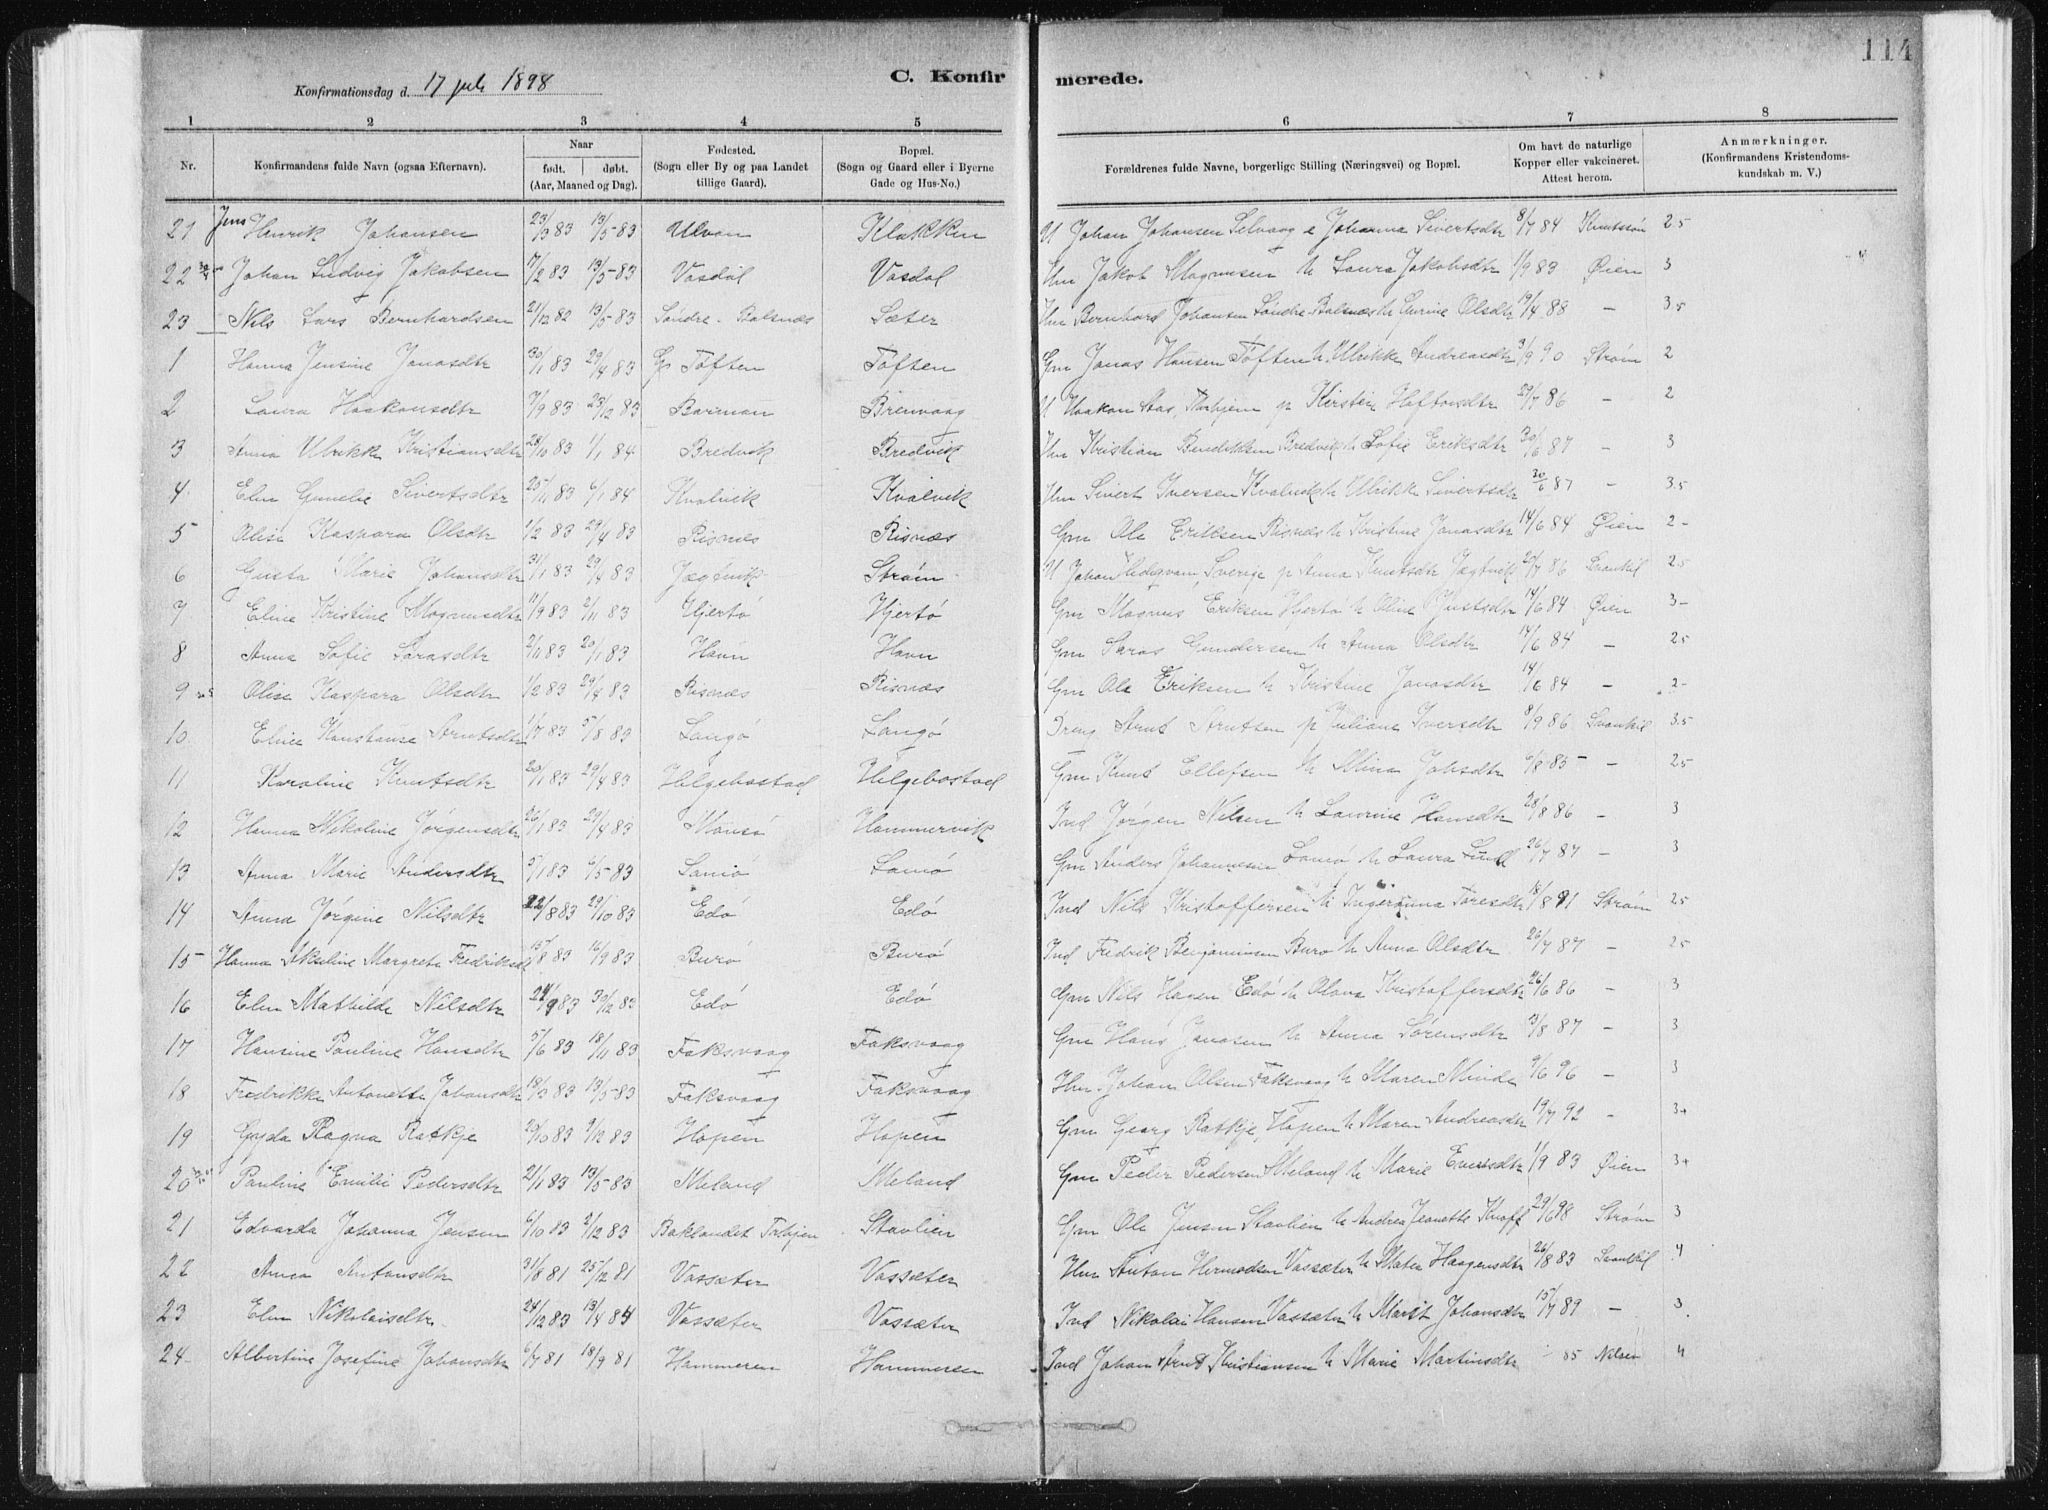 114
Konfirmationsdag d. 17 juli 1898
C. Konfirmerede.
1 2 3 4 5 6 7 8
Nr. Konfirmandens fulde Navn (ogsaa Efternavn). Naar født. døbt. (Aar, Maaned og Dag). Fødested. (Sogn eller By og paa Landet tillige Gaard). Bopæl. (Sogn og Gaard eller i Byerne Gade og Hus-No.) Forældrenes fulde Navne, borgerlige Stilling (Næringsvei) og Bopæl. Om havt de naturlige Kopper eller vakcineret. Attest herom. Anmærkninger. (Konfirmandens Kristendomskundskab m. V.)
21 Jens Henrik Johansen 23/3 83 13/5 83 Ulvan Klakken U Johan Johansen Selvaag & Johanna Sivertsdtr 8/7 84 Knutssøn 2.5
22 Johan Ludvig Jakobsen 17/2 83 13/5 83 Vasdal Vasdal Hm Jakob Magnussen h Laura Jakobsdtr 1/9 83 Øien 3
23 Nils Lars Bernhardsen 21/12 82 13/5 83 Søndre-Balsnæs Sæter Hm Bernhard Johansen Søndre Balsnæs h Gurine Olsdtr 19/4 88 – 3.5
1 Hanna Jensine Jonasdtr 30/1 83 29/4 83 Tøften Tøften Gm Jonas Hansen Tøften h Ulrikke Andreasdtr 3/9 90 Strøm 2
2 Laura Haakonsdtr 7/9 83 23/12 83 Barman Brenvaag U Haakon Aas, Thrhjem p Kirstine Heftonsdtr 29/7 86 – 2
3 Anna Ulrikke Kristiansdtr 28/10 83 1/1 84 Bredvik Bredvik Hm Kristian Bendiksen Bredvik h Sofie Eriksdtr 30/6 87 – 3
4 Elen Gunelie Sivertsdtr 25/11 83 6/1 84 Kvalvik Kvalvik Hm Sivert Iversen Kvalvik h Ulrikke Sivertsdtr 30/6 87 – 3.5
5 Olise Kaspara Olsdtr 1/2 83 29/4 83 Risnæs Risnæs Gm Ole Eriksen Risnæs h Kristine Jonasdtr 14/6 84 Øien 2-
6 Gusta Marie Johansdtr 31/1 83 29/4 83 Jægtvik Strøm U Johan Hedqvan, Sverige p Anna Knutsdtr Jægtvik 20/7 86 Svankil 2.5
7 Eline Kristine Magnusdtr 11/9 83 2/11 83 Hjertø Hjertø Gm Magnus Eriksen Hjertø h Oline Justsdtr 14/6 84 Øien 3-
8 Anna Sofie Larasdtr 2/11 83 20/1 83 Havn Havn Gm Saras Gundersen h Anna Olsdtr 14/6 84 – 2.5
9 Olise Kaspara Olsdtr 1/2 83 29/4 83 Risnæs Risnæs Gm Ole Eriksen h Kristine Jonasdtr 14/6 84 – 2-
10 Eline Konstanse Arntsdtr 1/7 83 5/8 83 Langø Langø Dreng Arnt Arntsen p Juliane Iversdtr 8/9 86 Svankil 3.5
11 Karoline Knutsdtr 20/1 83 29/4 83 Helgebostad Helgebostad Gm Knut Ellefsen h Mina Johsdtr 6/8 85 – 2.5
12 Hanna Nikoline Jørgensdtr 26/1 83 29/4 83 Mausø Hammervik Ind Jørgen Nilsen h Laurine Hansdtr 28/8 86 – 3
13 Anna Marie Andersdtr 5/1 83 6/5 83 Lamø Lamø Gm Anders Johannesen Lamø h Laura Lund 26/7 87 – 3
14 Anna Jørgine Nilsdtr 22/8 83 29/10 83 Edø Edø Ind Nils Kristoffersen h Ingeranna Toresdtr 18/8 91 Strøm 2.5
15 Hanna Akseline Margrete Fredriksdtr 15/8 83 16/9 83 Burø Burø Ind Fredrik Benjaminsen Burø h Anna Olsdtr 26/7 87 – 2.5
16 Elen Mathilde Nilsdtr 24/9 83 30/12 83 Edø Edø Gm Nils Hagen Edø h Olava Kristoffersdtr 26/6 86 – 3
17 Hansine Pauline Hansdtr 5/6 83 18/11 83 Faksvaag Faksvaag Gm Hans Jonasen h Anna Sørensdtr 13/8 87 – 3
18 Fredrikke Antonette Johansdtr 18/3 83 13/5 83 Faksvaag Faksvaag Hm Johan Olsen Faksvaag h Maren Minde 9/6 96 – 3
19 Gyda Ragna Ratkje 20/10 83 9/12 83 Hopen Hopen Gm Georg Ratkje, Hopen h Maren Andreasdtr 19/7 92 – 3+
20 Pauline Emilie Pedersdtr 21/1 83 13/5 83 Meland Meland Gm Peder Pedersen Meland h Marie Evertsdtr 1/9 83 Øien 3+
21 Edvarda Johanna Jensen 6/10 83 2/12 83 Baklandet Trhjem Stavlien Gm Ole Jensen Stavlien h Andrea Jeanette Knoff 29/6 98 Strøm 3
22 Anna Antonsdtr 31/8 81 25/12 81 Vassæter Vassæter Hm Anton Hermodsen Vassæter h Mate Haagensdtr 26/8 83 Svankil 4
23 Elen Nikolaisdtr 24/12 83 13/4 84 Vassæter Vassæter Ind Nikolai Hansen Vassæter h Marit Johansdtr 15/7 89 – 3
24 Albertine Josefine Johansdtr 6/7 81 18/9 81 Hammeren Hammeren Ind Johan Arnt Kristiansen h Marie Martinsdtr 85 Nilsen 4